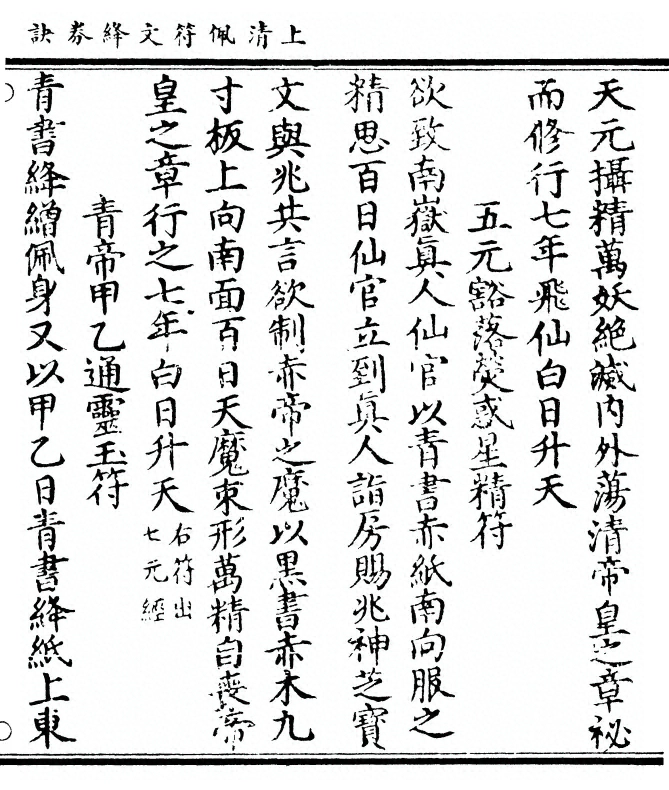 上清佩符文絳券訣
天元攝精萬妖絕滅內外蕩清帝皇之章祕
而修行七年飛仙白日升天
五元豁落熒惑星精符
欲致南嶽眞人仙官以青書赤紙南向服之
精思百日仙官立到眞人詣房賜兆神芝寶
文與兆共言欲制赤帝之魔以黑書赤木九
寸板上向南面百日天魔束形萬精自喪帝
皇之章行之七年白日升天右符出七元經
青帝甲乙通靈玉符
青書絳繒佩身又以甲乙日青書絳紙上東